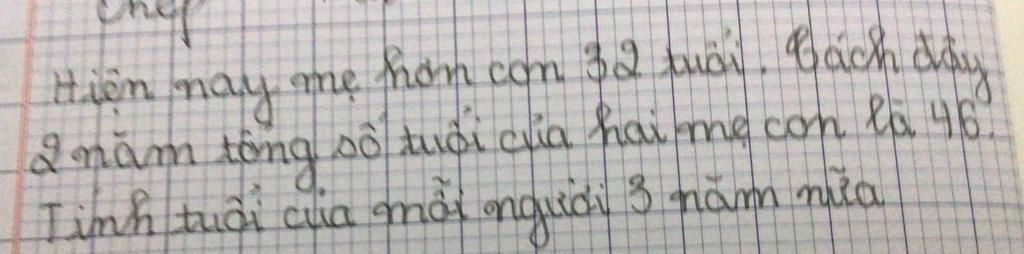 chép
Hiện nay mẹ hơn con 32 tuổi. Cách đây
2 năm tổng số tuổi của hai mẹ con là 46.
Tính tuổi của mỗi người 3 năm nữa